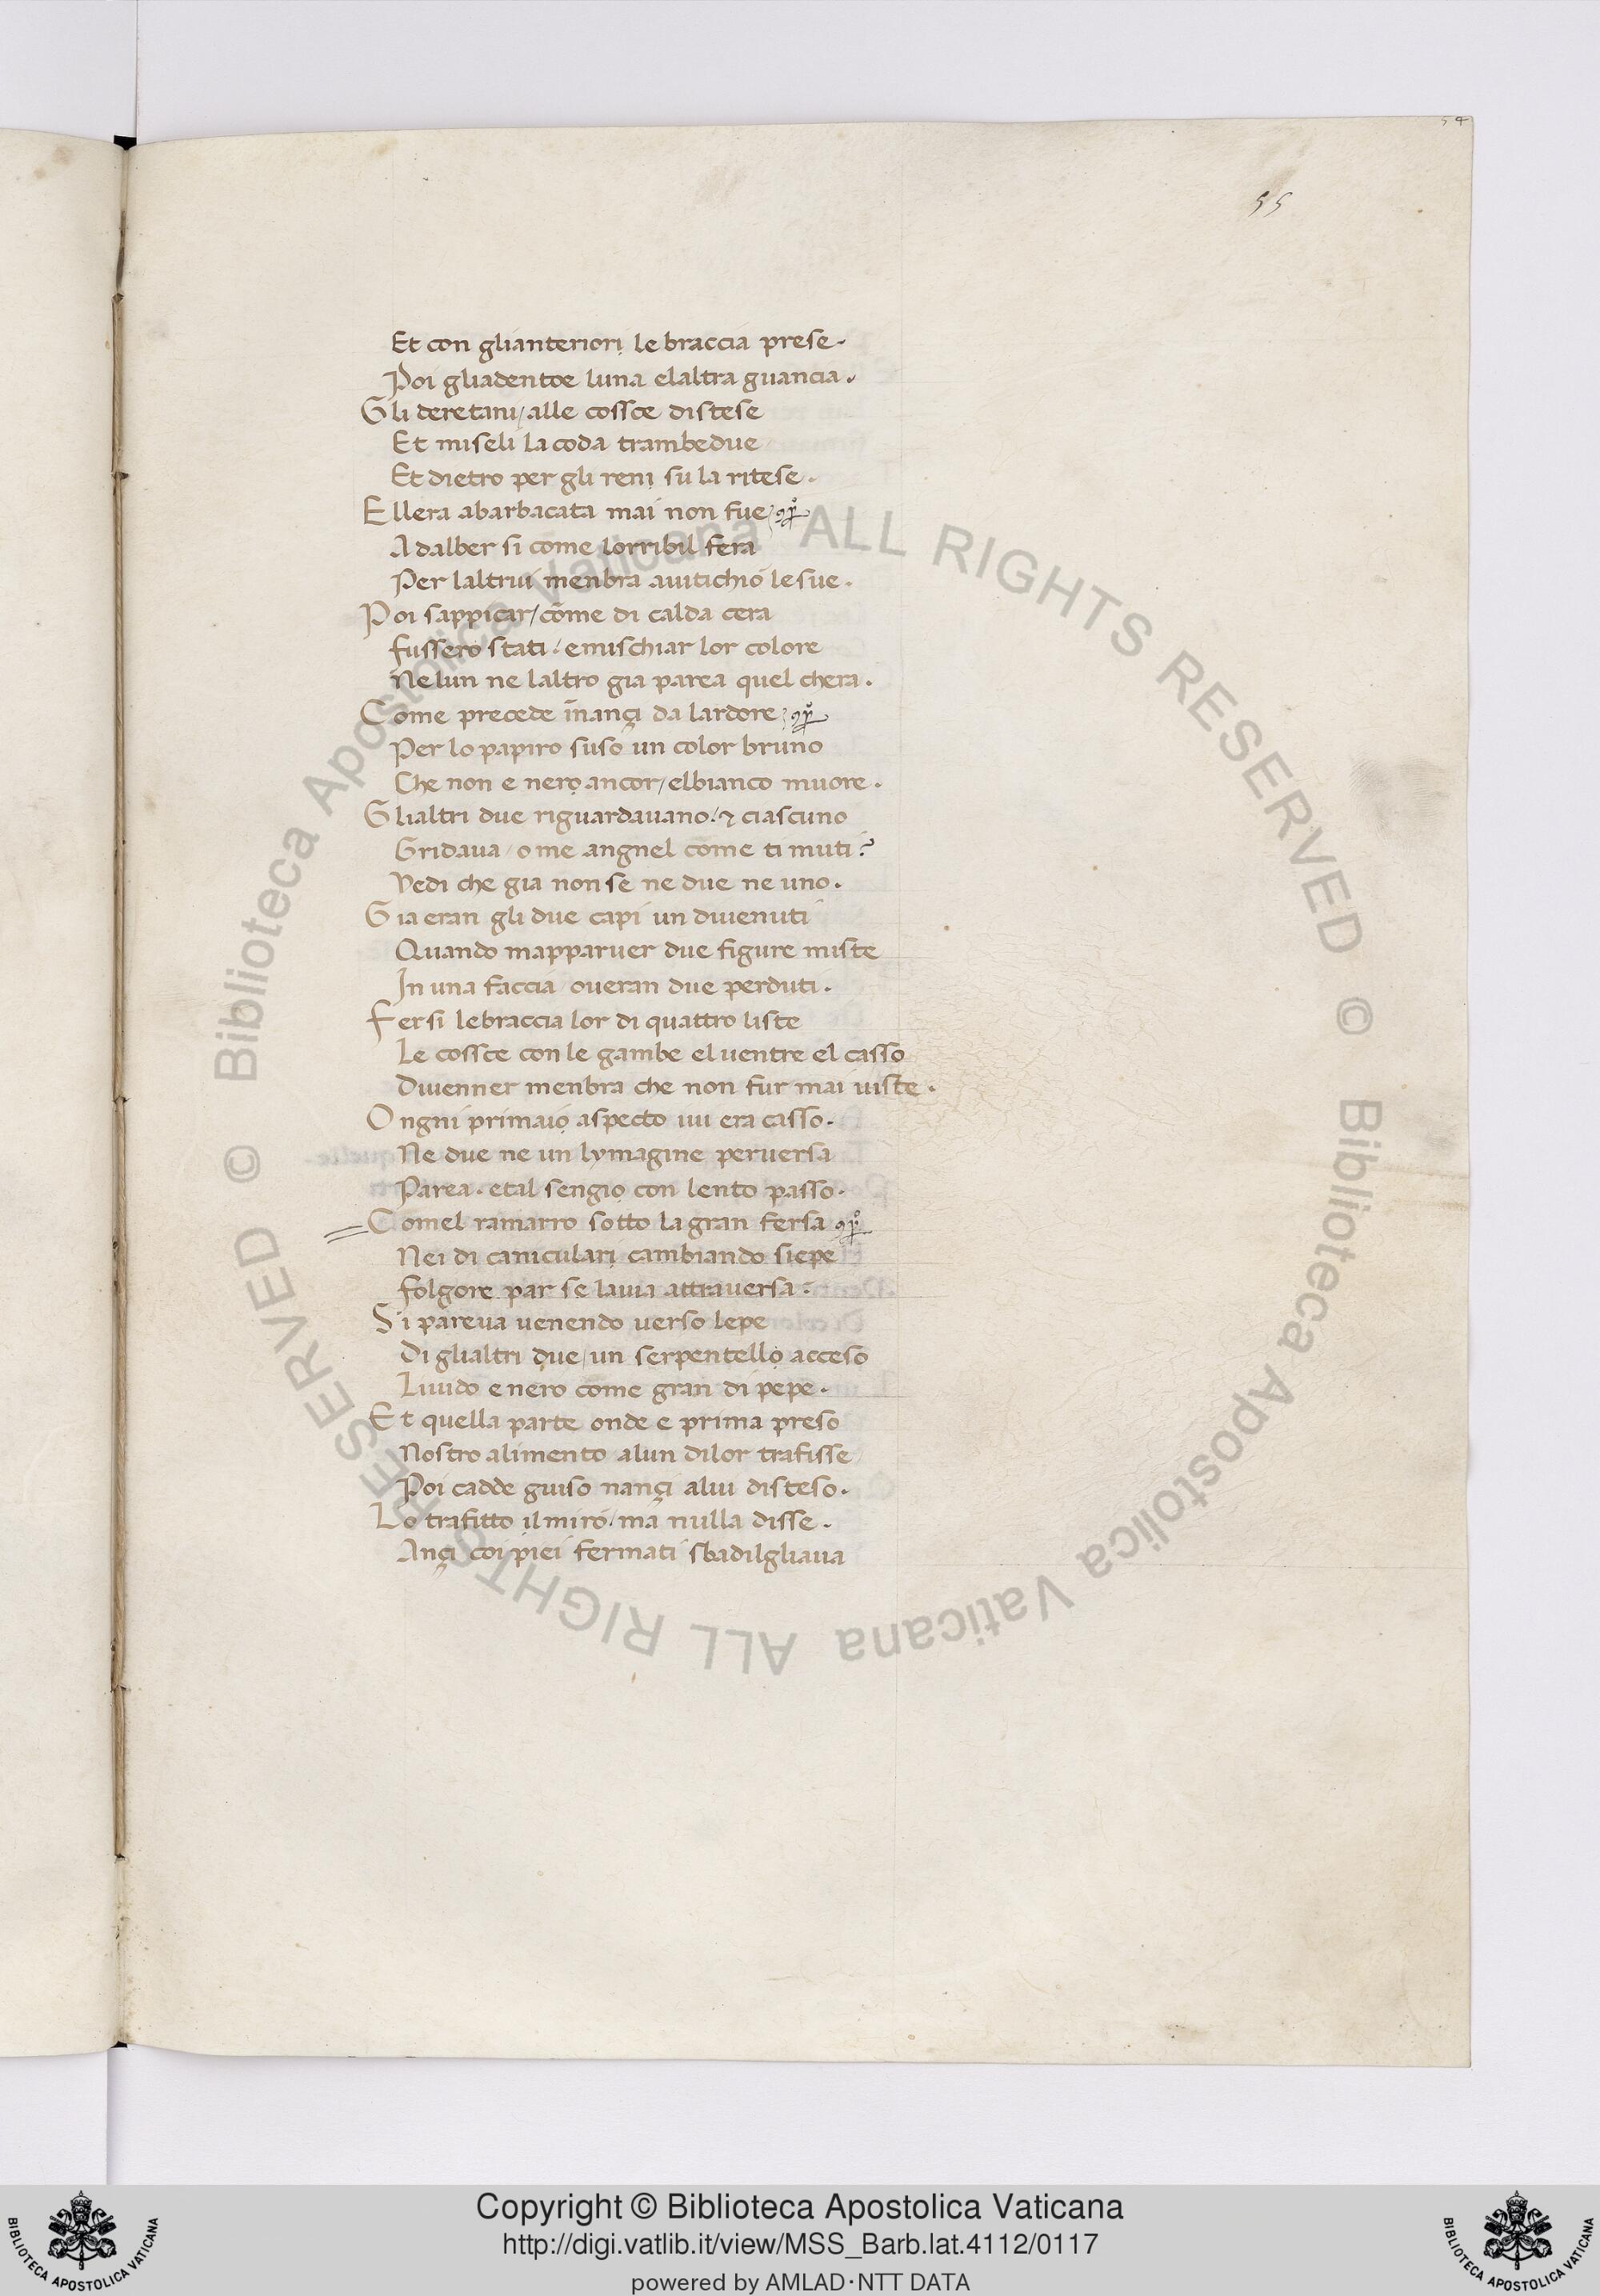 54
55
Et con glianteriori le braccia prese.
Poi gliadentoe luna elaltra guancia.
Gli deretani/ alle cossce distese
Et miseli la coda trambedue
Et dietro per gli reni su la ritese.
Ellera abarbacata mai non fue
Adalber si come lorribil fera
Per laltrui menbra auitichio lesue.
Poi sappicar/ come di calda cera
fussero stati/ emischiar lor colore
Nelun ne laltro gia parea quel chera.
Come precede inançi da lardore
Per lo papiro suso un color bruno
Che non e nero ancor/ elbianco muore.
Glialtri due riguardauano/ ⁊ ciascuno
Gridaua/ o me angnel come ti muti?
Vedi che gia non se ne due ne uno.
Gia eran gli due capi un diuenuti
Quando mapparuer due figure miste
In una faccia oueran due perduti.
Fersi lebraccia lor di quattro liste
Le cossce con le gambe el uentre el casso
Diuenner menbra che non fur mai uiste.
Ongni primaio aspecto iui era casso.
Ne due ne un lymagine peruersa
Parea. etal sengio con lento passo.
Comel ramarro sotto la gran fersa
Nei di caniculari cambiando siepe
folgore par se lauia attrauersa.
Si pareua uenendo uerso lepe
Di glialtri due/ un serpentello acceso
Liuido e nero come gran di pepe.
Et quella parte onde e prima preso
Nostro alimento alun dilor trafisse
Poi cadde guiso nançi alui disteso.
Lo trafitto il miro/ ma nulla disse.
Ançi coi piei fermati sbadilgliaua
© Biblioteca Apostolica Vaticana ALL RIGHTS RESERVED
© Biblioteca Apostolica Vaticana ALL RIGHTS RESERVED
Copyright © Biblioteca Apostolica Vaticana
http://digi.vatlib.it/view/MSS_Barb.lat.4112/0117
powered by AMLAD·NTT DATA
BIBLIOTECA APOSTOLICA VATICANA
BIBLIOTECA APOSTOLICA VATICANA